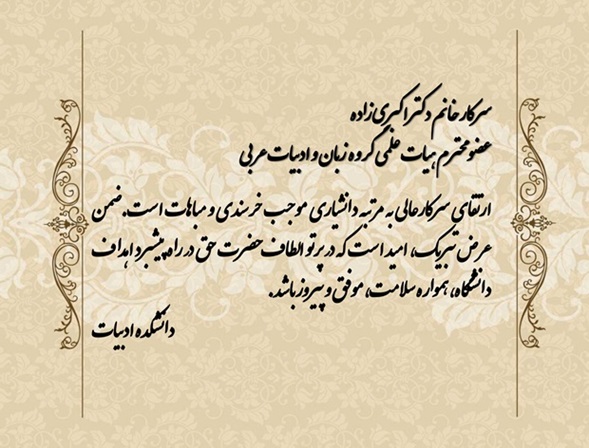 سرکار خانم دکتر اکبری زاده
عضو محترم هیات علمی گروه زبان و ادبیات عربی
ارتقای سرکارعالی به مرتبه دانشیاری موجب خرسندی و مباهات است. ضمن
عرض تبریک، امید است که در پرتو الطاف حضرت حق در راه پیشبرد اهداف
دانشگاه، همواره سلامت، موفق و پیروز باشد.
دانشکده ادبیات